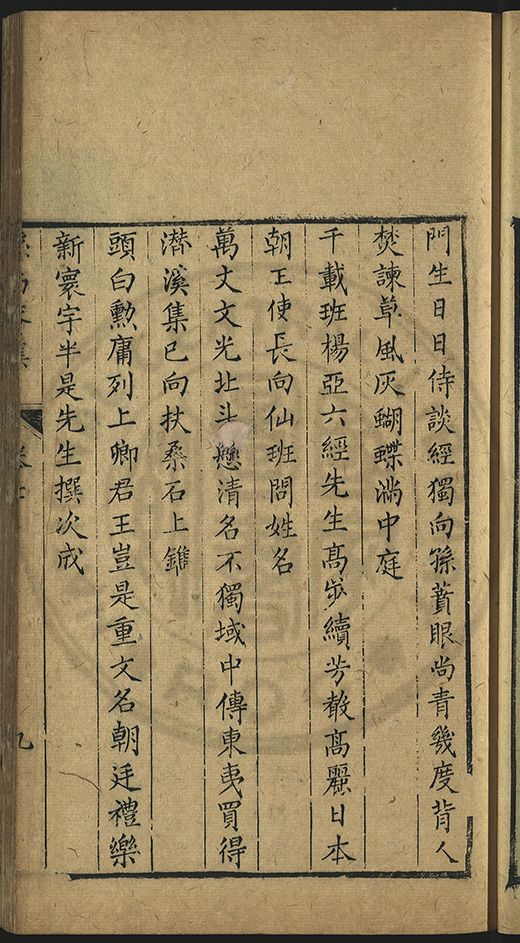 門生日日侍談經獨向孫蕡眼尚青幾度背人
焚諫草風灰蝴蝶滿中庭
千載班楊亞六經先生髙步續芳教髙麗日本
朝王使長向仙班問姓名
萬丈文光北斗懸清名不獨域中傳東夷買得
潛溪集已向扶桑石上鐫
頭白勲庸列上卿君王豈是重文名朝廷禮樂
新寰宇半是先生撰次成